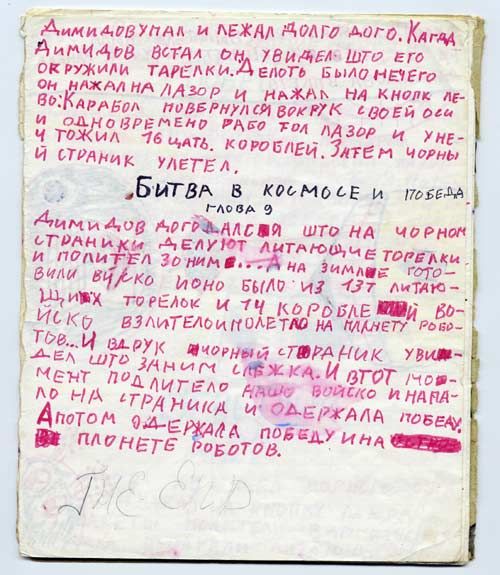 ДИМИДОВ УПАЛ И ЛЕЖАЛ ДОЛГО ДОГО. КАГДА
ДИМИДОВ ВСТАЛ ОН УВИДЕЛ ШТО ЕГО
ОКРУЖИЛИ ТАРЕЛКИ. ДЕЛОТЬ БЫЛО НЕЧЕГО
ОН НАЖАЛ НА ЛАЗОР И НАЖАЛ НА КНОПК ЛЕ-
ВО. КАРАБОЛ ПОВЕРНУЛСЯ ВОКРУК СВОЕЙ ОСИ
И ОДНОВРЕМЕНО РАБОТОЛ ЛАЗОР И УНЕ-
ЧТОЖИЛ 16ЦАТЬ. КОРОБЛЕЙ. ЗАТЕМ ЧОРНЫ
Й СТРАНИК УЛЕТЕЛ.
БИТВА В КОСМОСЕ И ПОБЕДА
ГЛОВА 9
ДИМИДОВ ДОГОДАЛСЯ ШТО НА ЧОРНОМ
СТРАНИКИ ДЕЛУЮТ ЛИТАЮЩИЕ ТОРЕЛКИ.
И ПОЛИТЕЛ ЗО НИМ.... А НА ЗИМЛЕ ГОТО-
ВИЛИ ВИСКО ИОНО БЫЛО ИЗ 13Т ЛИТАЮ-
ЩИХ ТОРЕЛОК И 14 КОРОБЛЕЙ ВО-
ЙСКО ВЗЛИТЕЛО И ПОЛЕТЛО НА ПЛАНЕТУ РОБО-
ТОВ... И ВДРУК ЧОРНЫЙ СТРАНИК УВИ-
ДЕЛ ШТО ЗАНИМ СЛЕЖКА. И ВТОТ МО-
МЕНТ ПОДЛИТЕЛО НАШО ВИЙСКО И НАПА-
ЛО НА СТРАНИКА И ОДЕРЖАЛА ПОБЕДУ.
А ПОТОМ ОДЕРЖАЛА ПОБЕДУ И НА
ПЛОНЕТЕ РОБОТОВ.
THE END